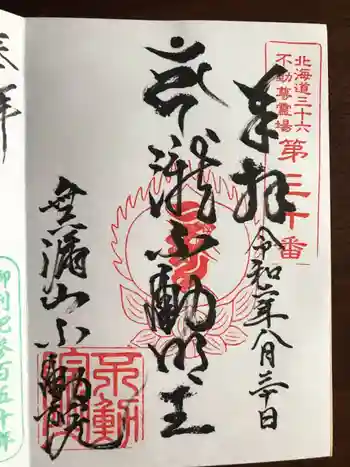 北海道三十六
不動尊霊場
第三十番
奉拝
令和二年八月三十日
瀧不動明王
無漏山不動院
不動院
奉拝
御利記参百五十年